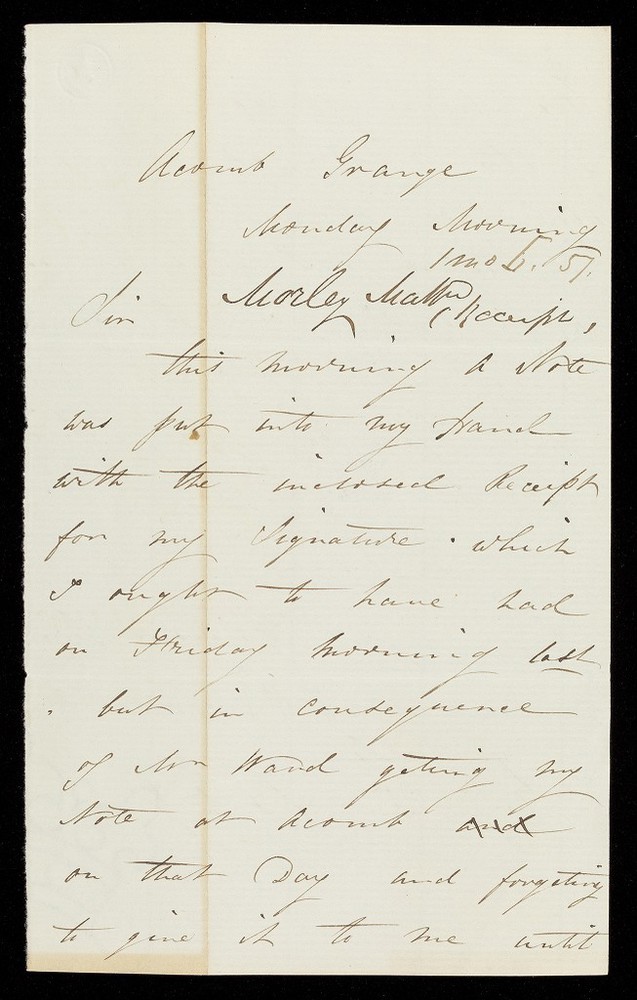 Acomb Grange
Monday Morning
1 mo 5. 57.
Morley Matthw Receipt,
Sir
this morning a Note
was put into my Hand
with the inclosed Receipt
for my Signature. which
I ought to have had
on Friday morning last
. but in consequence
of Mr Wand geting my
Note at Acomb and
on that Day and forgeting
to give it to me until